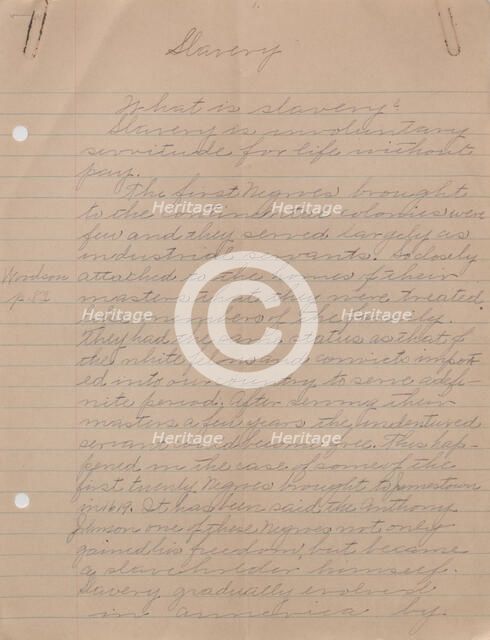 Slavery
What is slavery?
Slavery is involuntary
servitude for life without
pay.
The first Negroes brought
to the continental colonies were
few and they served largely as
industrial servants. So closely
Woodson attached to the homes of their
p. 82 masters that they were treated
as members of the family.
They had the same status as that of
the white felons and convicts import-
ed into our country to serve a defi-
nite period. After serving their
masters a few years the indentured
servants became free. This hap-
pened in the case of some of the
first twenty Negroes brought to Jamestown
in 1619. It has been said, the Anthony
Johnson one of these Negroes not only
gained his freedom, but became
a slaveholder himself.
Slavery gradually evolved
in America by
Heritage Heritage
Heritage
Heritage Heritage
Heritage
Heritage Heritage